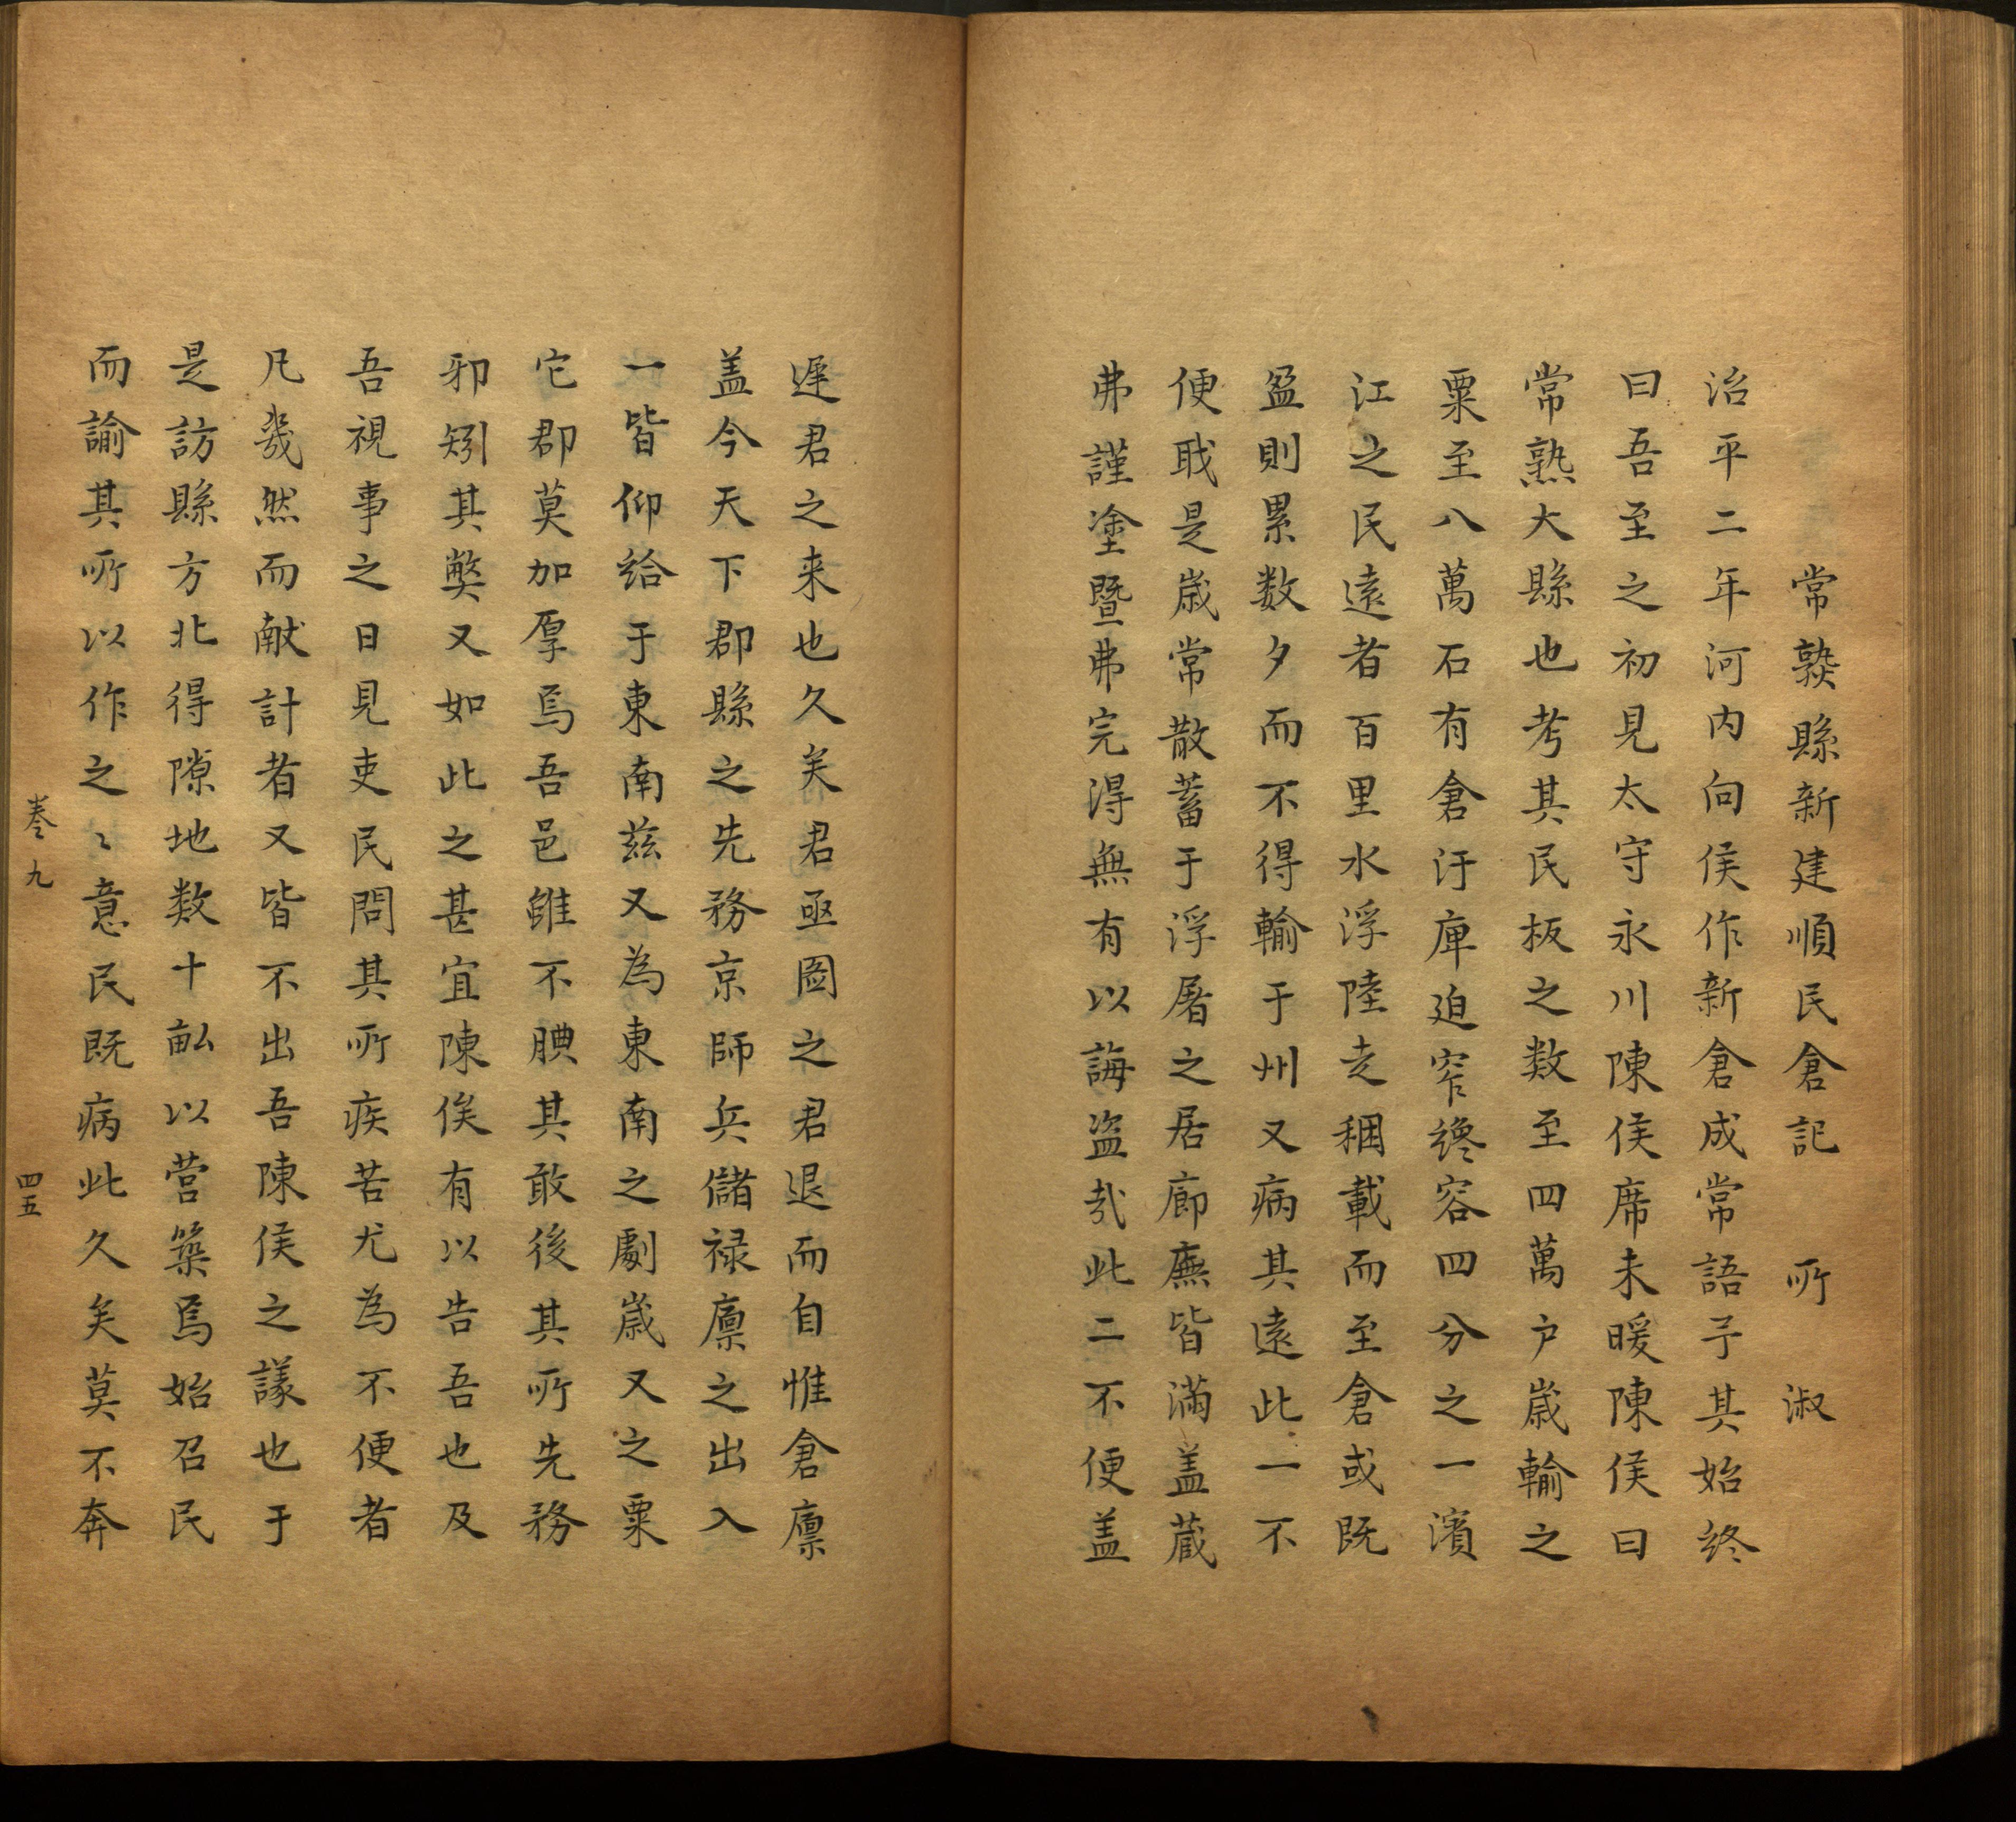 常𤍨縣新建順民倉記　所　淑
治平二年河内向侯作新倉成常語予其始終
曰吾至之初見太守永川陳侯席未暖陳侯曰
常熟大縣也考其民板之数至四萬户歳輸之
粟至八萬石有倉汙庫迫窄纔容四分之一濱
江之民遠者百里水浮陸走稛載而至倉或既
盈則累数夕而不得輸于州又病其遠此一不
便戢是歳常散蓄于浮屠之居廊廡皆滿盖蔵
弗謹塗曁弗完淂無有以誨盗㢤此二不便盖
遲君之来也久矣君亟圖之君退而自惟倉廪
盖今天下郡縣之先務京師兵儲禄廪之出入
一皆仰給于東南兹又為東南之劇歳又之粟
它郡莫加厚焉吾邑雖不腆其敢後其所先務
邪矧其弊又如此之甚宜陳侯有以告吾也及
吾視事之日見吏民問其所疾苦尤為不便者
凡幾然而献計者又皆不出吾陳侯之議也于
是訪縣方北得隙地数十畝以营築焉始召民
而諭其所以作之〻意民既病此久矣莫不奔
卷九　四五